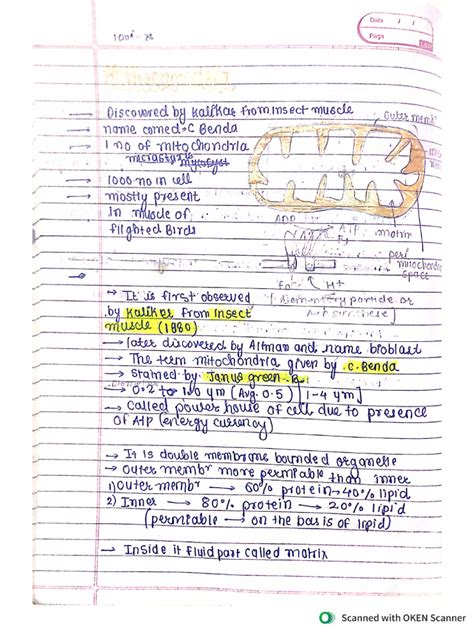 Date / /
Page
Mitochondria
→ Discovered by Kalikar from Insect muscle
→ name comed - C Benda
→ 1 no of mitochondria
→ 1000 no in cell
→ mostly present
In muscle of
flighted Birds
Outer memb
matrix
peri mitochondria
space
ADP
ATP
F₁
Fo
H⁺
→ It is first observed
by Kalikar from Insect
muscle (1880)
→ later discovered by Altman and name bioblast
→ The term mitochondria given by C. Benda
→ stained by Janus green-B
→ 0.2 to 1.0 ym [Avg 0.5] 1-4 ym]
→ Called power house of cell due to presence
of ATP (energy currency)
→ It is double membrane bounded organelle
→ outer membr more permiable than inner
1) outer membr → 60% protein → 40% lipid
2) Inner → 80% protein → 20% lipid
(permiable → on the basis of lipid)
→ Inside it fluid part called matrix
Scanned with OKEN Scanner